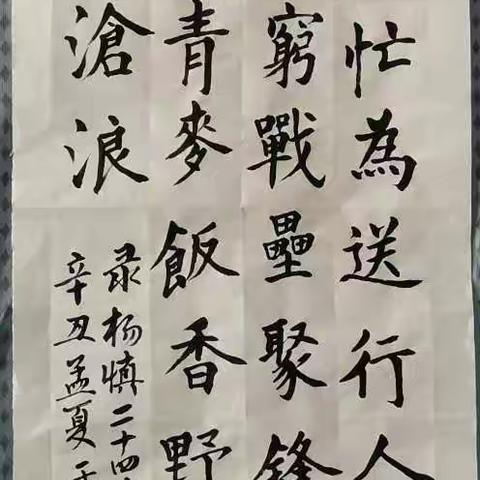 忙為送行人
窮戰壘聚鋒
青麥飯香野
滄浪
录杨慎二十四
辛丑孟夏